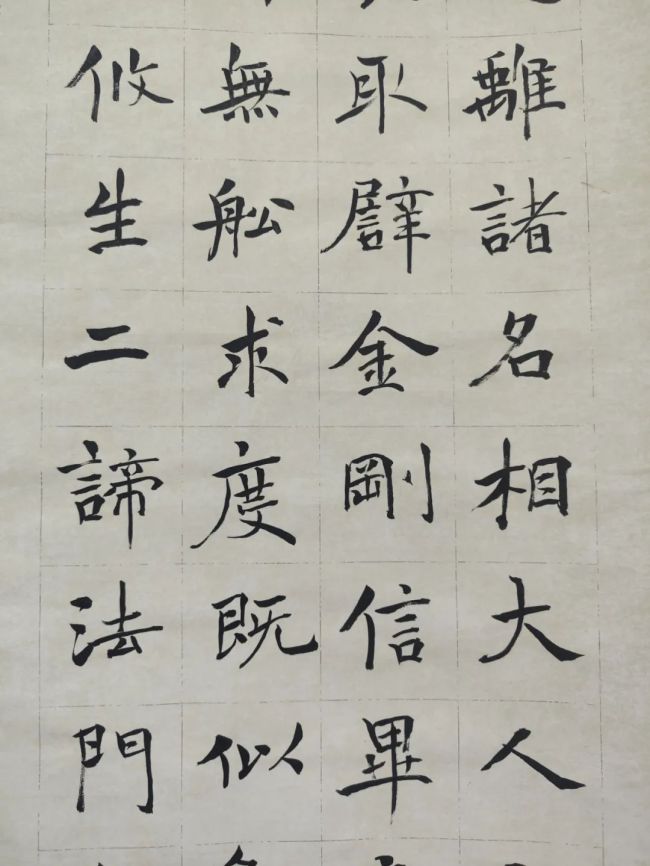 離諸名相大人
取譬金剛信畢
無舩求度既似
攸生二諦法門